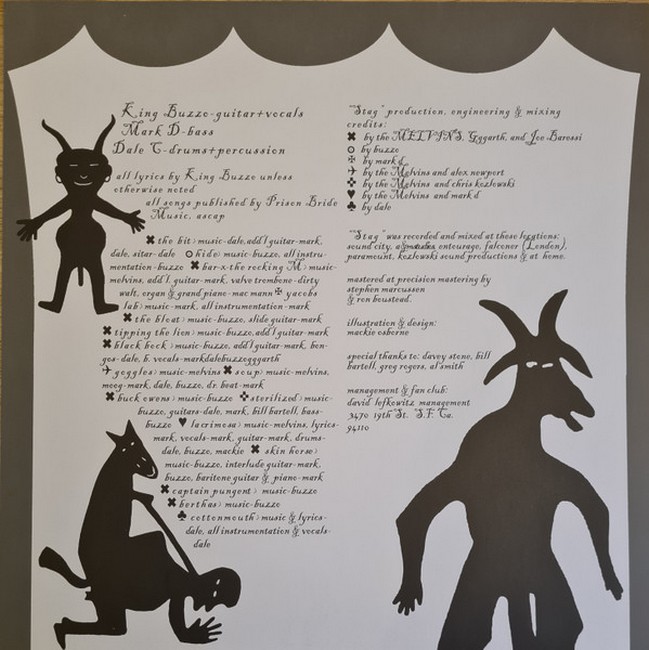 King Buzzo-guitar+vocals
Mark D-bass
Dale C-drums+percussion
all lyrics by King Buzzo unless
otherwise noted
all songs published by Prison Bride
Music, ascap
✖ the bit> music-dale, add'l guitar-mark,
dale, sitar-dale ⊙ hide> music-buzzo, all instru-
mentation-buzzo ✖ bar-x-the rocking M> music-
melvins, add'l. guitar-mark, valve trombone-dirty
walt, organ & grand piano-mac mann ✠ yacobs
lab> music-mark, all instrumentation-mark
✖ the bloat> music-buzzo, slide guitar-mark
✖ tipping the lion> music-buzzo, add'l guitar-mark
✖ black bock> music-buzzo, add'l guitar-mark, bon-
gos-dale, b. vocals-markdalebuzzogggarth
✈ goggles> music-melvins ✖ soup> music-melvins,
moog-mark, dale, buzzo, dr. beat-mark
✖ buck owens> music-buzzo ✤ sterilized> music-
buzzo, guitars-dale, mark, bill bartell, bass-
buzzo ♥ lacrimosa> music-melvins, lyrics-
mark, vocals-mark, guitar-mark, drums-
dale, buzzo, mackie ✖ skin horse>
music-buzzo, interlude guitar-mark,
buzzo, baritone guitar & piano-mark
✖ captain pungent> music-buzzo
✖ berthas> music-buzzo
♣ cottonmouth> music & lyrics-
dale, all instrumentation & vocals-
dale
"Stag" production, engineering & mixing
credits:
✖ by the MELVINS, Gggarth, and Joe Barresi
⊙ by buzzo
✠ by mark d.
✈ by the Melvins and alex newport
✤ by the Melvins and chris kozlowski
♥ by the Melvins and mark d
♣ by dale
"Stag" was recorded and mixed at these locations:
sound city, entourage, falconer (London),
paramount, kozlowski sound productions & at home.
mastered at precision mastering by
stephen marcussen
& ron boustead.
illustration & design:
mackie osborne
special thanks to: davey stone, bill
bartell, greg rogers, al smith
management & fan club:
david lefkowitz management
3470 19th St. S.F. Ca.
94110